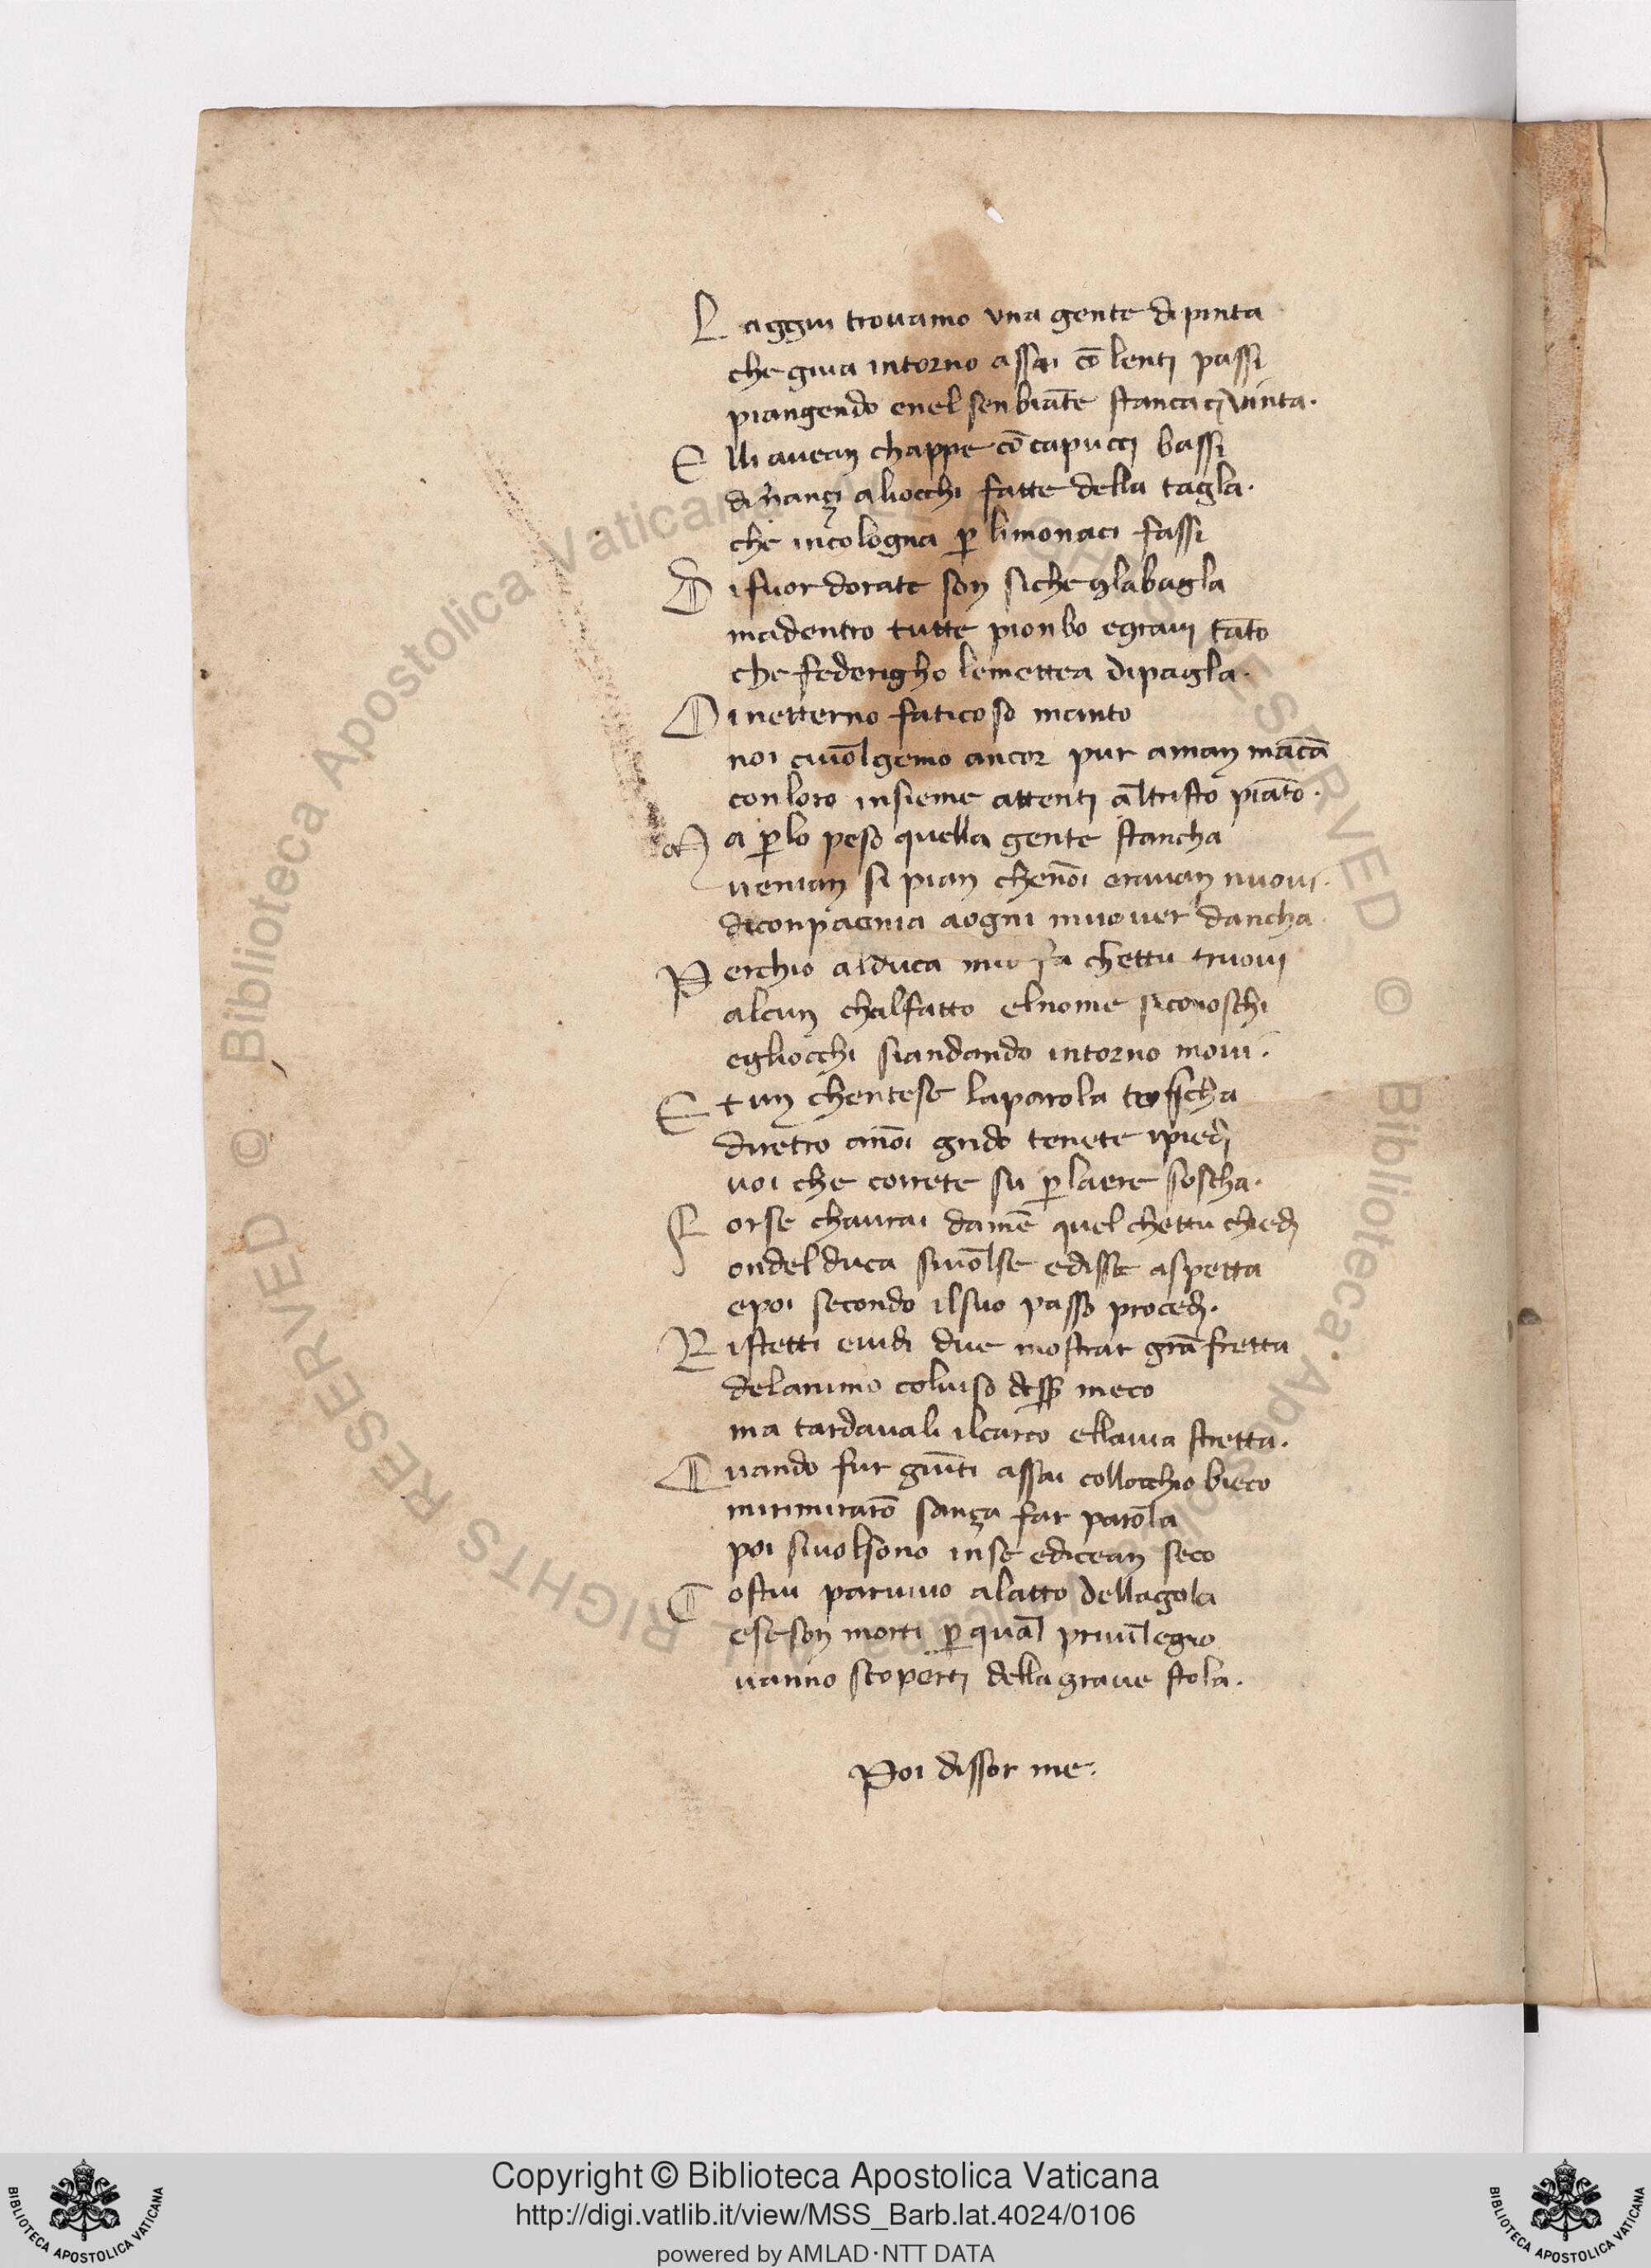 L aggiu trouamo vna gente dipinta
che giua intorno assai cō lenti passi
piangendo enel senbiāte stanca ꝯ vinta.
E lli auean chappe cō capucci bassi
dinançi aliocchi fatte della tagla.
che incologna ꝑ limonaci fassi
D ifuor dorate son siche glabagla
madentro tutte pionbo egraui tāto
che federigho lemettea dipagla.
O inetterno faticoso manto
noi ciuōlgemo ancor pur aman māca
conloro insieme attenti āltristo piāto.
M a ꝑlo peso quella gente stancha
uenian si pian chenōi erauan nuoui.
diconpagnia aogni muouer dancha.
P erchio alduca mio fa chettu truoui
alcun chalfatto elnome siconoschi
egliocchi siandando intorno moui.
E t un chentese laparola toscha
dirietro anōi grido tenete ipiedi
uoi che correte su ꝑ laere foscha.
F orse chaurai damē quel chettu chiedi
ondel duca siuōlse edisse aspetta
epoi secondo ilsuo passo procedi.
R istetti euidi due mostrar grā fretta
delanimo coluiso desser meco
ma tardauali ilcarco ellauia stretta.
Q uando fur giūti assai collocchio bieco
mirimirarō sança far parōla
poi siuolsono inse edicean seco
C ostui paruiuo alatto dellagola
eseson morti ꝑ quāl priuīlegio
uanno scoperti dellagraue stola.
Poi dissor me.
Copyright © Biblioteca Apostolica Vaticana
http://digi.vatlib.it/view/MSS_Barb.lat.4024/0106
powered by AMLAD·NTT DATA
BIBLIOTECA APOSTOLICA VATICANA
BIBLIOTECA APOSTOLICA VATICANA
© Biblioteca Apostolica Vaticana ALL RIGHTS RESERVED
© Biblioteca Apostolica Vaticana ALL RIGHTS RESERVED